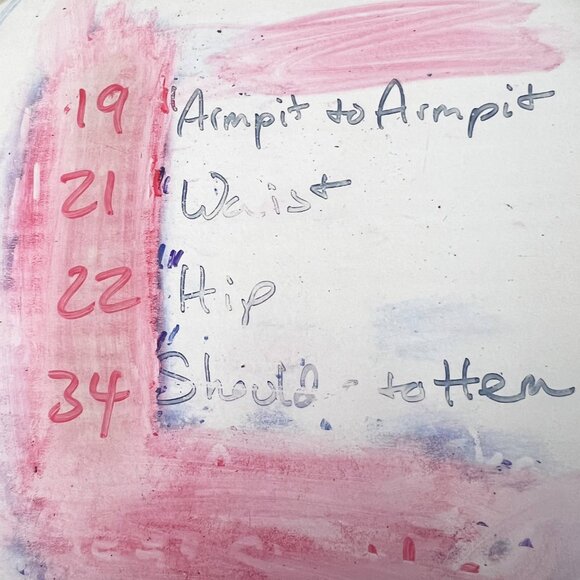 19" Armpit to Armpit
21" Waist
22" Hip
34" Should - to Hem